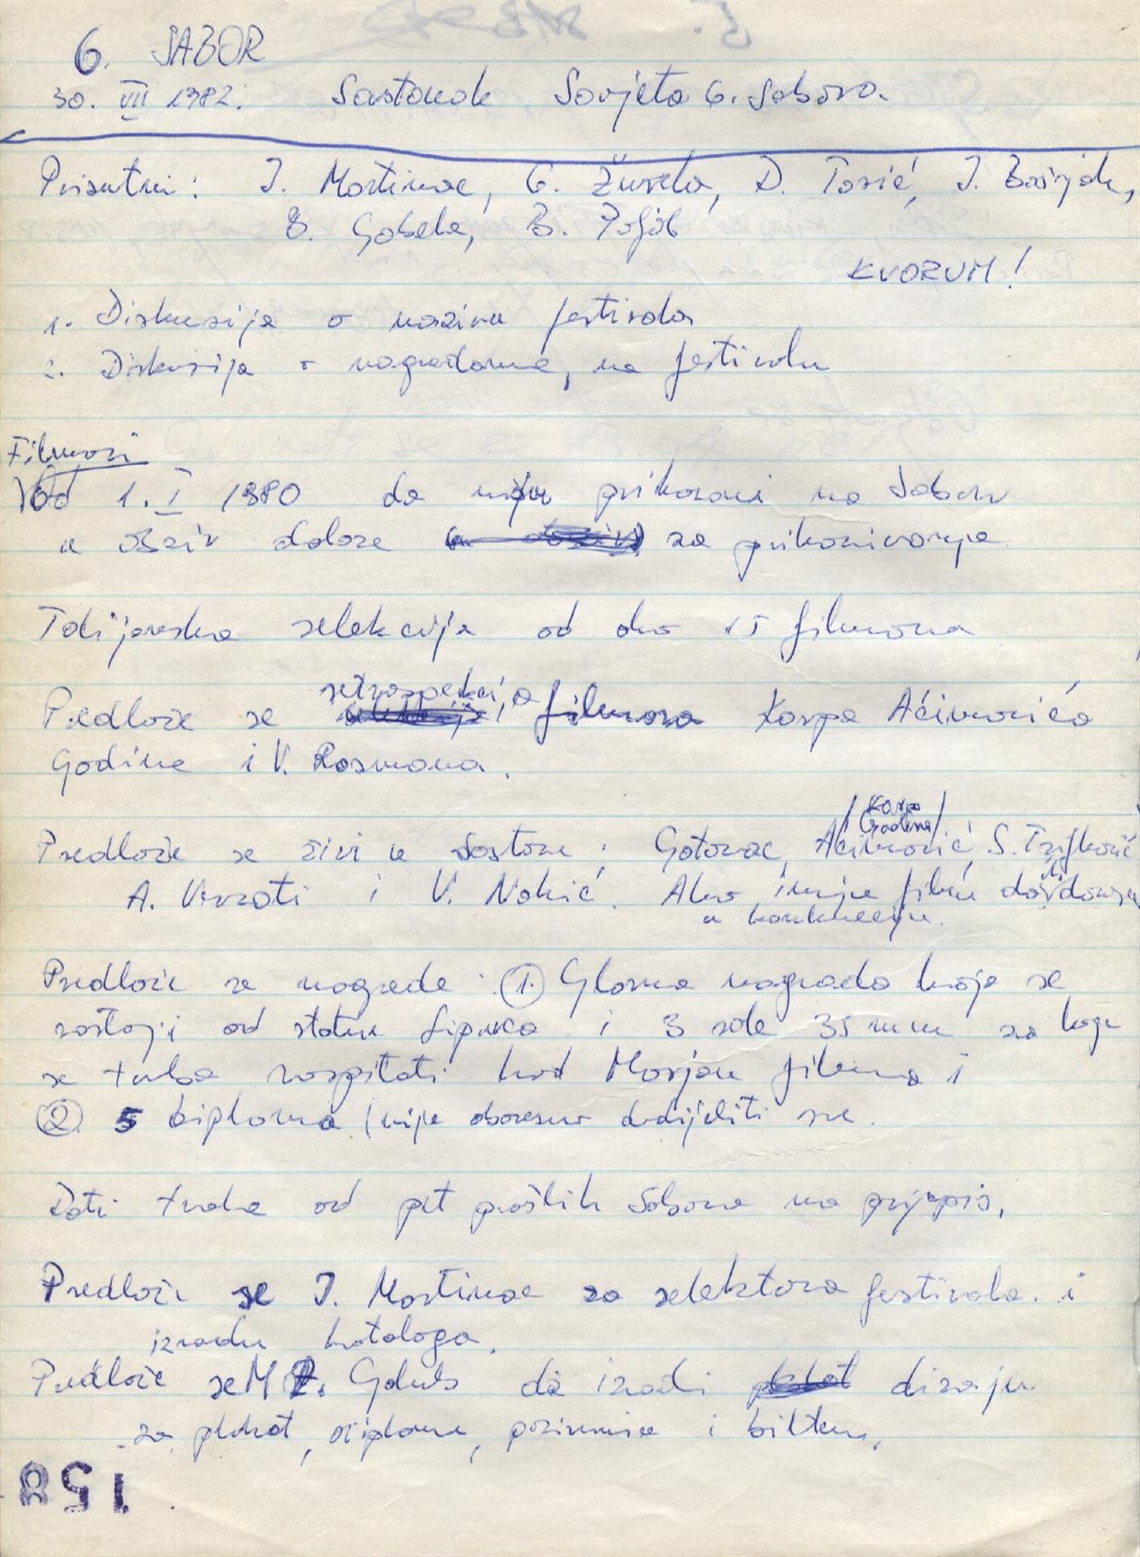 6. SABOR
30. VII 1982. Sastanak Savjeta 6. Sabora.
Prisutni: I. Martinac, G. Žuvela, D. Tasić, J. Bošnjak,
Z. Gabela, B. Poljib
KVORUM!
1. Diskusija o nazivu festivala
2. Diskusija o nagradama, na festivalu
Filmovi
Od 1. I 1980 da nisu prikazani na Saboru
u obzir dolaze za prikazivanje
Talijanska selekcija od oko 15 filmova
Predlaže se retrospekcija filmova Karpa Aćimovića
Godine i V. Rosmana.
/ Karpo
Godina /
Predlaže se žiri u sastavu: Gotovac, Aćimović, S. Trifković
A. Verzoti i V. Nakić. Ako imaju film
u konkurenciju.
Predlaže se nagrade: 1. Glavna nagrada koja se
sastoji od statue Lipnica i 3 role 35 mm za koju
se treba raspitati kod Marjan filma i
2. 5 diploma (nije obavezno dodijeliti sve.
Dati trake od pet prošlih Sabora na prijepis.
Predlaže se I. Martinac za selektora festivala. i
izradu kataloga.
Predlaže se M. da izradi dizajn
za plakat, diplome, pozivnice i bilten.
158